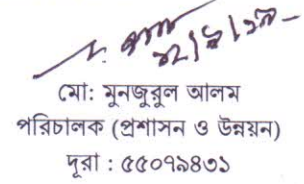 মো: মুনজুরুল আলম
পরিচালক (প্রশাসন ও উন্নয়ন)
দূরা : ৫৫০৭৯৪৩১